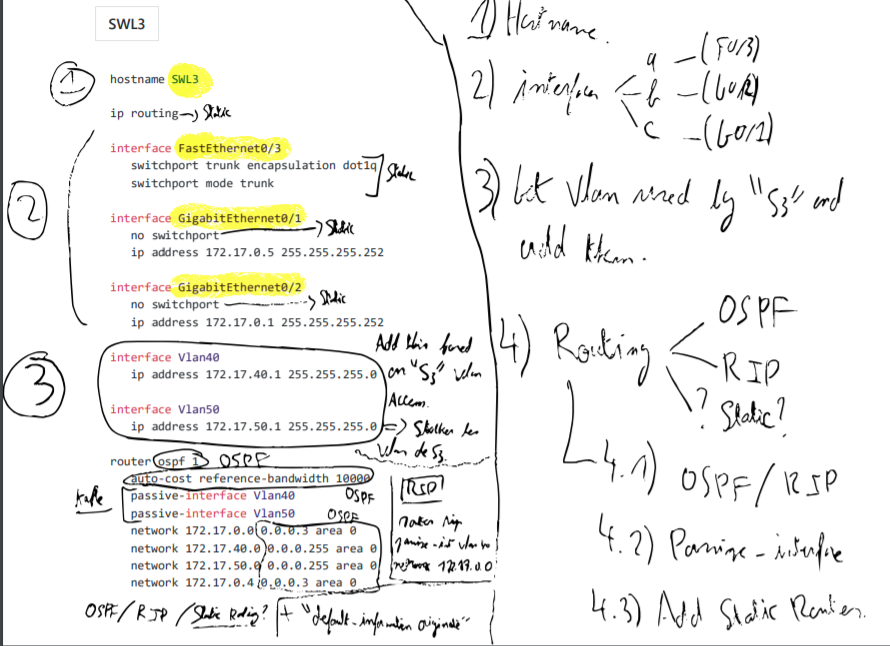 SWL3
1
hostname SWL3
ip routing → Static
2
interface FastEthernet0/3
switchport trunk encapsulation dot1q
switchport mode trunk
Static
interface GigabitEthernet0/1
no switchport → Static
ip address 172.17.0.5 255.255.255.252
interface GigabitEthernet0/2
no switchport → Static
ip address 172.17.0.1 255.255.255.252
3
interface Vlan40
ip address 172.17.40.1 255.255.255.0
interface Vlan50
ip address 172.17.50.1 255.255.255.0
Add this based
on "S3" Vlan
Access.
=> Stocker les
Vlan de S3.
router ospf 1 OSPF
auto-cost reference-bandwidth 10000
passive-interface Vlan40 OSPF
passive-interface Vlan50 OSPF
network 172.17.0.0 0.0.0.3 area 0
network 172.17.40.0 0.0.0.255 area 0
network 172.17.50.0 0.0.0.255 area 0
network 172.17.0.4 0.0.0.3 area 0
RIP
router rip
network 172.17.0.0
OSPF / RIP / Static Routing? + "default-information originate"
1) Hostname.
2) interface
a - (F0/3)
b - (G0/2)
c - (G0/1)
3) Get Vlan used by "S3" and
add them.
4) Routing
OSPF
RIP
? Static?
4.1) OSPF / RIP
4.2) Passive-interface
4.3) Add Static Routes.